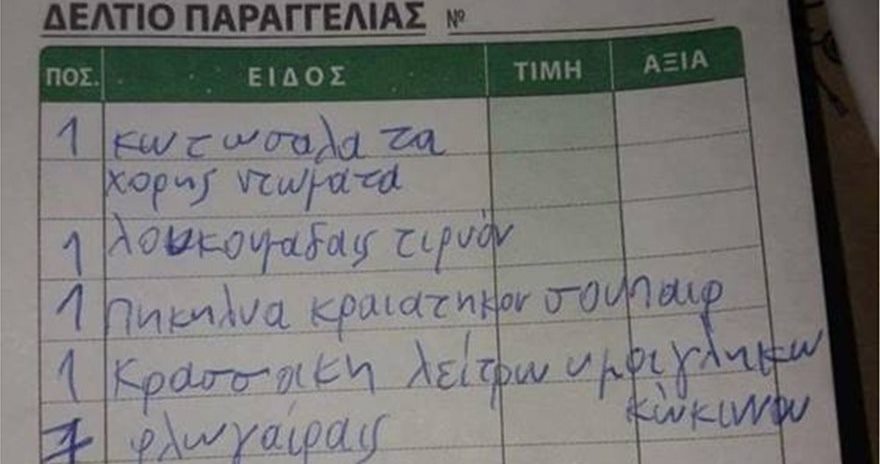 ΔΕΛΤΙΟ ΠΑΡΑΓΓΕΛΙΑΣ №
ΠΟΣ. ΕΙΔΟΣ ΤΙΜΗ ΑΞΙΑ
1 κωτωσαλατα
χορης ντωματα
1 λουκουμαδαις τιρυόν
1 πηκηλυα κραιατηκον σουπαιρ
1 κρασσακη λείτρω ημηγληκω
κώκινου
1 φλωγαίραις